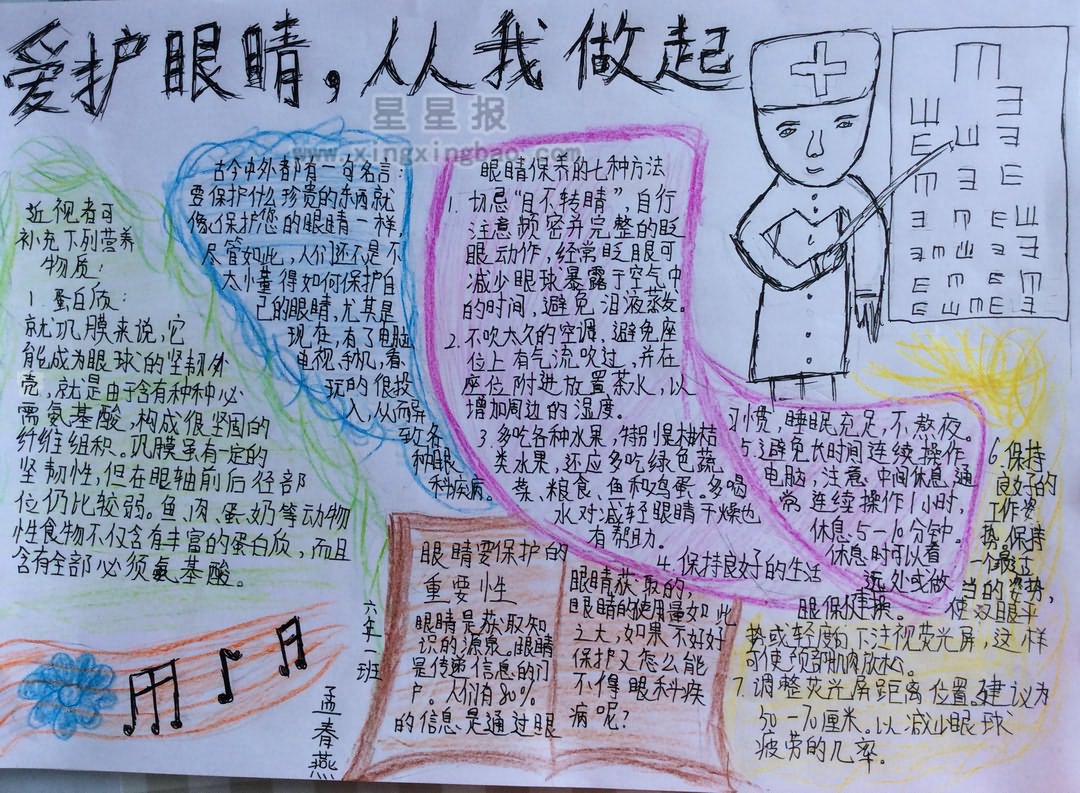 爱护眼睛，从我做起
星星报
www.xingxingbao.com
近视者可
补充下列营养
物质：
1. 蛋白质：
就巩膜来说，它
能成为眼球的坚韧外
壳，就是由于含有种种必
需氨基酸，构成很坚固的
纤维组积。巩膜虽有一定的
坚韧性，但在眼轴前后径部
位仍比较弱。鱼、肉、蛋、奶等动物
性食物不仅含有丰富的蛋白质，而且
含有全部必须氨基酸。
古今中外都有一句名言：
要保护什么珍贵的东西就
像保护您的眼睛一样，
尽管如此，人们还不是不
大懂得如何保护自
己的眼睛，尤其是
现在，有了电脑
电视，手机，看、
玩的很投
入，从而解
致各
种眼
科疾病。
眼睛保养的七种方法
1. 切忌“目不转睛”，自行
注意频密并完整的眨
眼动作，经常眨眼可
减少眼球暴露于空气中
的时间，避免泪液蒸发。
2. 不吹太久的空调，避免座
位上有气流吹过，并在
座位附进放置茶水，以
增加周边的湿度。
3. 多吃各种水果，特别是柑桔
类水果，还应多吃绿色蔬
菜、粮食、鱼和鸡蛋。多喝
水对减轻眼睛干燥也
有帮助。
4. 保持良好的生活
习惯，睡眠充足，不熬夜。
5. 避免长时间连续操作
电脑，注意中间休息，通
常连续操作1小时，
休息5—10分钟。
休息时可以看
远处或做
眼保健操。
6. 保持
良好的
工作姿
势。保持
一个最适
当的姿势，
使双眼平
势或轻度向下注视荧光屏，这样
可使颈部肌肉放松。
7. 调整荧光屏距离位置。建议为
50—70厘米。以减少眼球
疲劳的几率。
眼睛要保护的
重要性
眼睛是获取知
识的源泉。眼睛
是传递信息的门
户。人们有80%
的信息是通过眼
眼睛获取的，
眼睛的使用量如此
之大，如果不好好
保护又怎么能
不得眼科疾
病呢？
六年一班
孟春燕